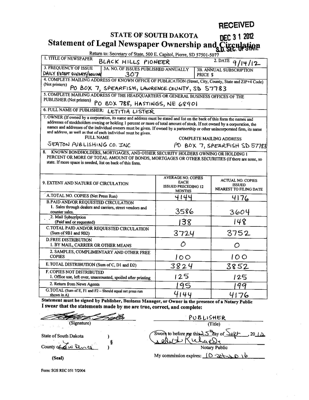 RECEIVED
DEC 31 2012
S.D. SEC. OF STATE
STATE OF SOUTH DAKOTA
Statement of Legal Newspaper Ownership and Circulation
Return to: Secretary of State, 500 E. Capitol, Pierre, SD 57501-5077
1. TITLE OF NEWSPAPER BLACK HILLS PIONEER
2. DATE 9/14/12
3. FREQUENCY OF ISSUE DAILY EXCEPT SUNDAY/
3A. NO. OF ISSUES PUBLISHED ANNUALLY 307
3B. ANNUAL SUBSCRIPTION PRICE $
4. COMPLETE MAILING ADDRESS OF KNOWN OFFICE OF PUBLICATION (Street, City, County, State and ZIP+4 Code)
(Not printers) PO BOX 7, SPEARFISH, LAWRENCE COUNTY, SD 57783
5. COMPLETE MAILING ADDRESS OF THE HEADQUARTERS OF GENERAL BUSINESS OFFICES OF THE
PUBLISHER (Not printer) PO BOX 788, HASTINGS, NE 68901
6. FULL NAME OF PUBLISHER: LETITIA LISTER
7. OWNER (If owned by a corporation, its name and address must be stated and list on the back of this form the names and
addresses of stockholders owning or holding 1 percent or more of total amount of stock. If not owned by a corporation, the
names and addresses of the individual owners must be given. If owned by a partnership or other unincorporated firm, its name
and address, as well as that of each individual must be given.
FULL NAME
COMPLETE MAILING ADDRESS
SEATON PUBLISHING CO. INC
PO BOX 7, SPEARFISH SD 57783
8. KNOWN BONDHOLDERS, MORTGAGES, AND OTHER SECURITY HOLDERS OWNING OR HOLDING 1
PERCENT OR MORE OF TOTAL AMOUNT OF BONDS, MORTGAGES OR OTHER SECURITIES (If there are none, so
state. If more space is needed, list on back of this form.
9. EXTENT AND NATURE OF CIRCULATION
AVERAGE NO. COPIES EACH ISSUED PRECEDING 12 MONTHS
ACTUAL NO. COPIES ISSUED NEAREST TO FILING DATE
A. TOTAL NO. COPIES (Net Press Run) 4144 4176
B. PAID AND/OR REQUESTED CIRCULATION
1. Sales through dealers and carriers, street vendors and
counter sales. 3586 3604
2. Mail Subscription
(Paid and or requested) 138 148
C. TOTAL PAID AND/OR REQUESTED CIRCULATION
(Sum of 9B1 and 9B2) 3724 3752
D. FREE DISTRIBUTION
1. BY MAIL, CARRIER OR OTHER MEANS 0 0
2. SAMPLES, COMPLIMENTARY AND OTHER FREE
COPIES 100 100
E. TOTAL DISTRIBUTION (Sum of C, D1 and D2) 3824 3852
F. COPIES NOT DISTRIBUTED
1. Office use, left over, unaccounted, spoiled after printing 125 125
2. Return from News Agents 195 199
G. TOTAL (Sum of E, F1 and F2 - Should equal net press run
shown in A) 4144 4176
Statement must be signed by Publisher, Business Manager, or Owner in the presence of a Notary Public
I swear that the statements made by me are true, correct, and complete:
PUBLISHER
(Signature)
(Title)
State of South Dakota )
) §
County of )
Sworn to before me this 25 day of Sept, 2012
Notary Public
(Seal)
My commission expires:
Form: SOS REC 051 7/2004